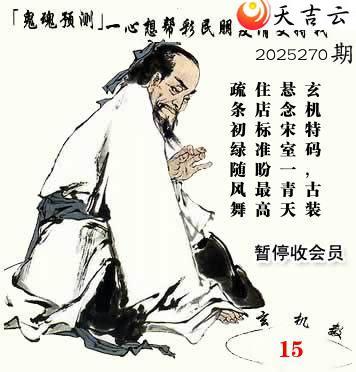 天吉云
「鬼魂预测」一心想帮彩民朋友
2025270期
玄机特码，古装
悬念宋室一青天
住店标准盼最高
疏条初绿随风舞
暂停收会员
玄机数
15